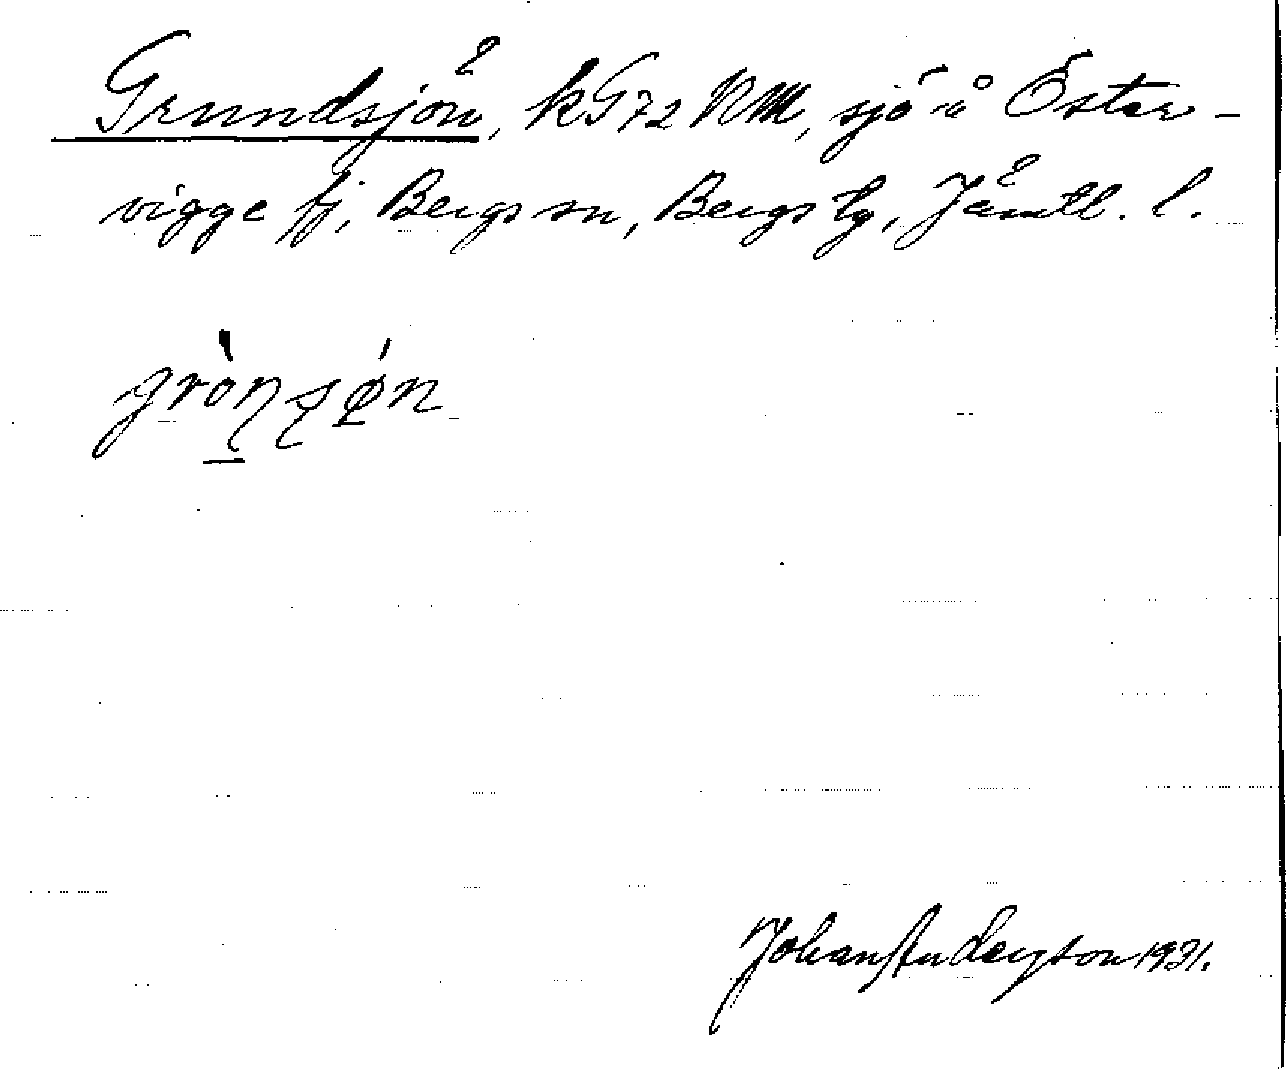 Grundsjön, kG72 NM, sjö å Öster-
vigge fj, Bergs sn, Bergs tg, Jämtl. l.
gròn̠sǿn
Johan Anderson 1931.